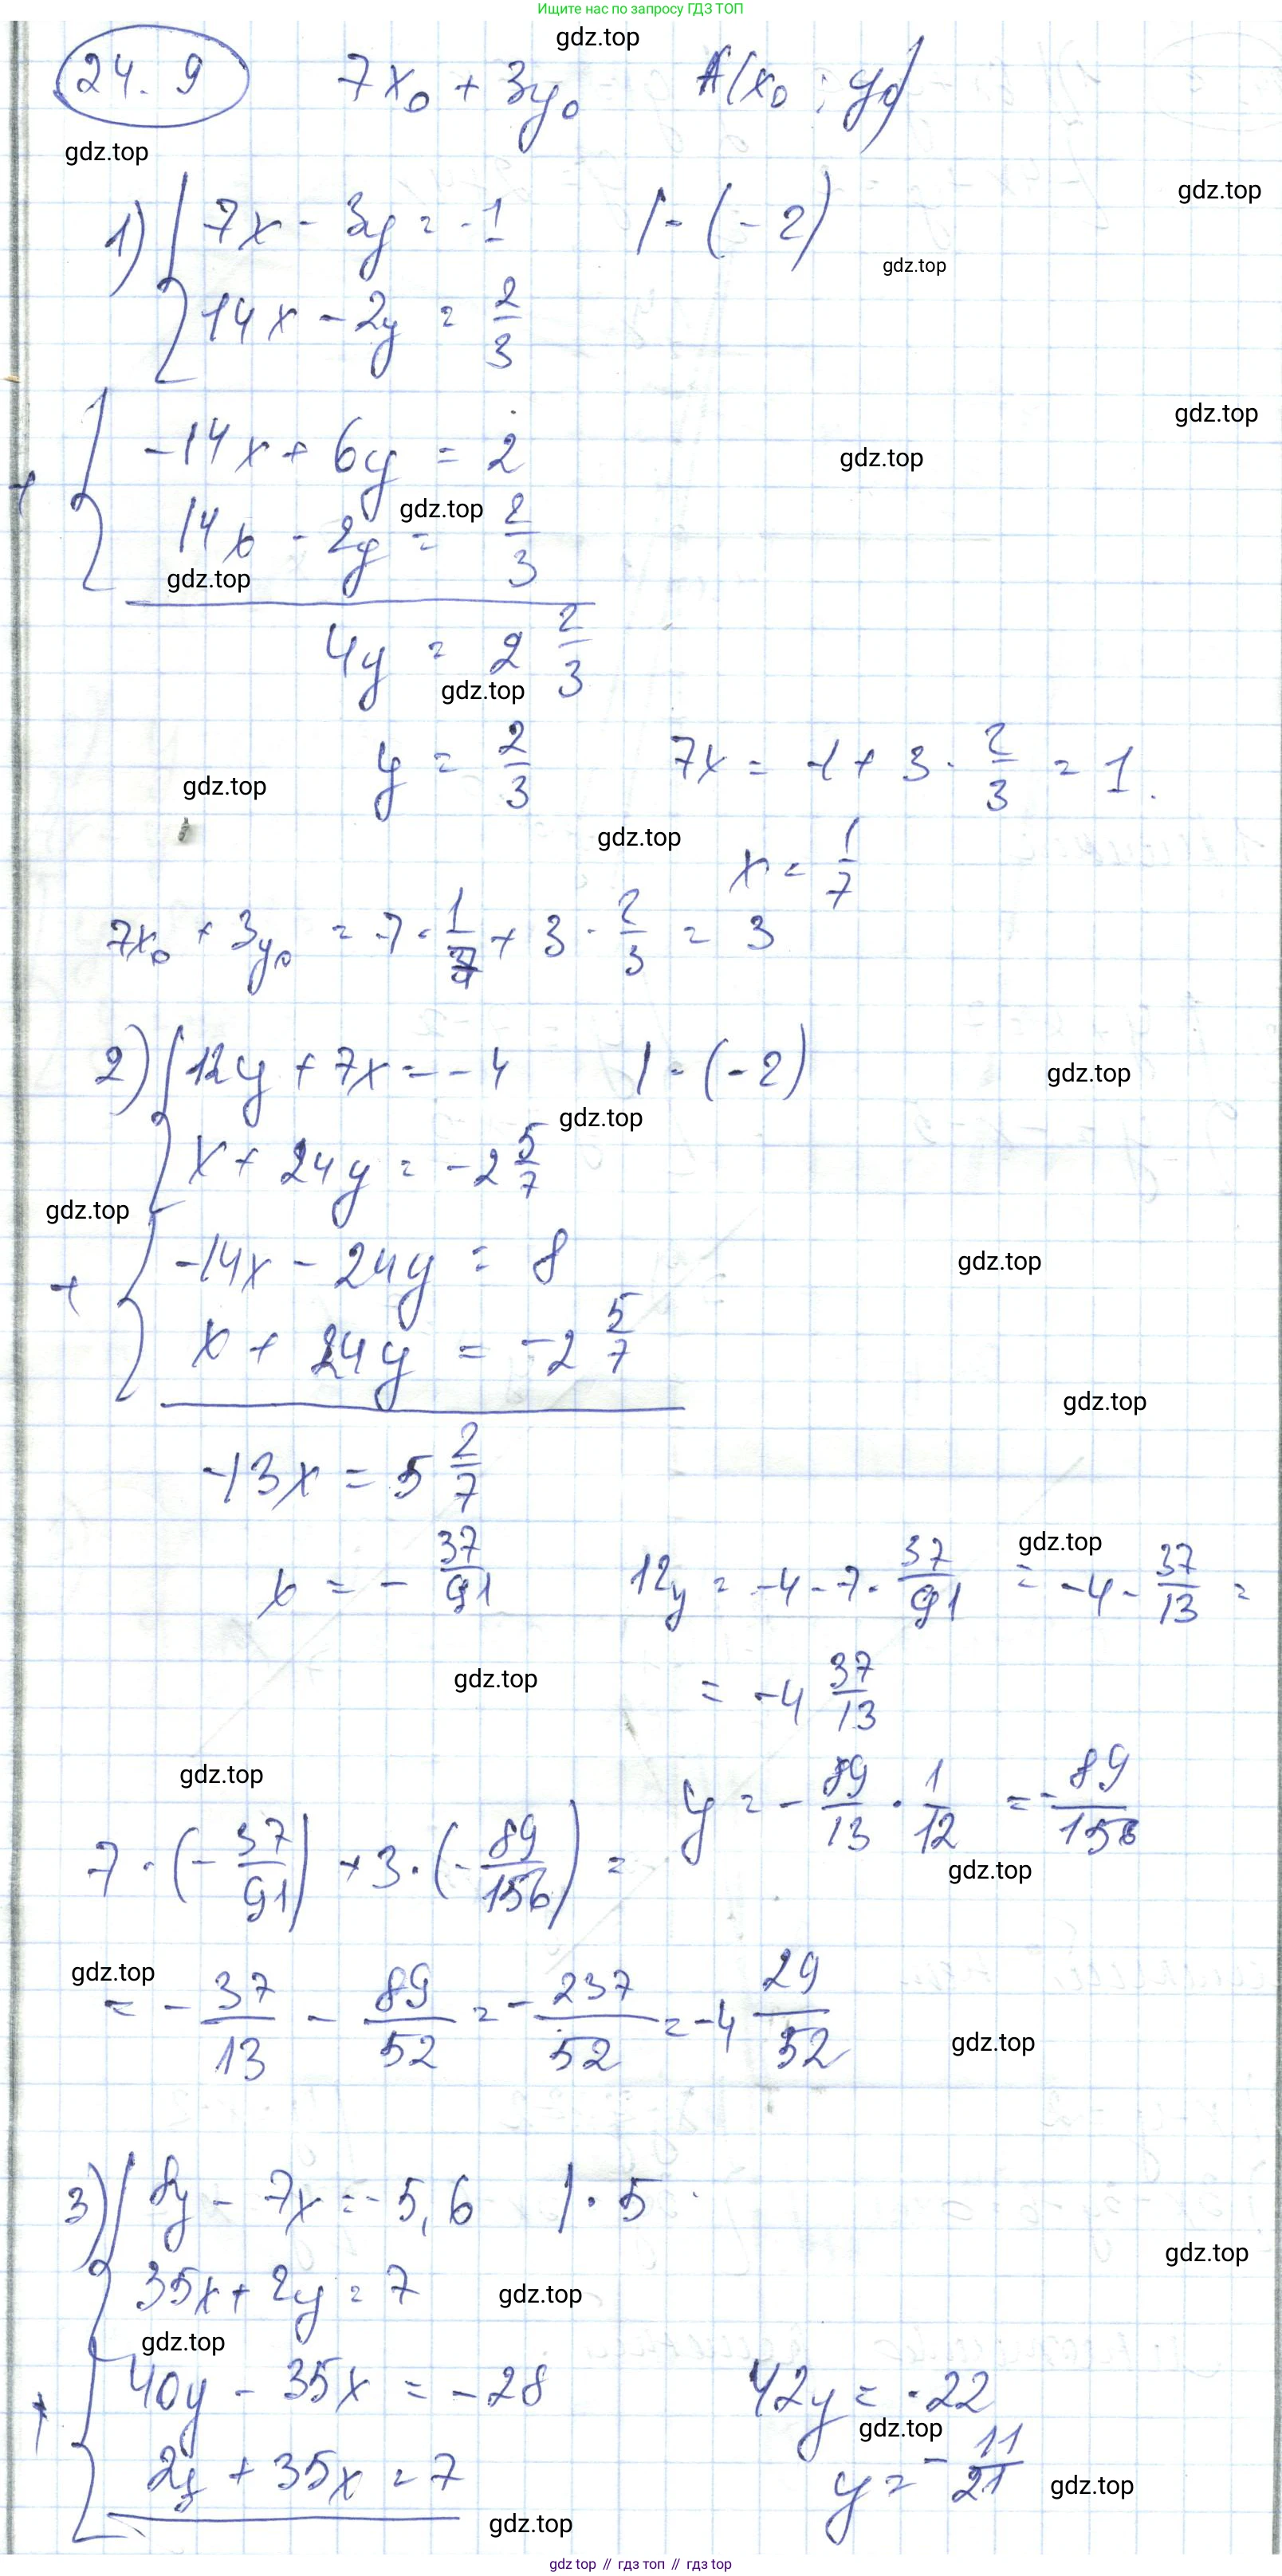 Ищите нас по запросу ГДЗ ТОП
gdz.top
24.9 7x₀ + 3y₀ A(x₀; y₀)
gdz.top
gdz.top
1) { 7x - 3y = -1 | · (-2)
gdz.top
14x - 2y = 2/3
gdz.top
+ { -14x + 6y = 2
gdz.top
gdz.top
14x - 2y = 2/3
gdz.top
4y = 2 2/3
gdz.top
y = 2/3 7x = -1 + 3 · 2/3 = 1.
gdz.top
gdz.top
x = 1/7
7x₀ + 3y₀ = 7 · 1/7 + 3 · 2/3 = 3
2) { 12y + 7x = -4 | · (-2)
gdz.top
gdz.top
x + 24y = -2 5/7
gdz.top
+ { -14x - 24y = 8
gdz.top
x + 24y = -2 5/7
gdz.top
-13x = 5 2/7
gdz.top
x = - 37/91 12y = -4 - 7 · 37/91 = -4 - 37/13 =
gdz.top
= -4 37/13
gdz.top
y = - 89/13 · 1/12 = - 89/156
7 · (- 37/91) + 3 · (- 89/156) =
gdz.top
gdz.top
= - 37/13 - 89/52 = - 237/52 = -4 29/52
gdz.top
3) { 8y - 7x = -5,6 | · 5
gdz.top
35x + 2y = 7
gdz.top
gdz.top
+ { 40y - 35x = -28 42y = -22
gdz.top
2y + 35x = 7 y = - 11/21
gdz.top
gdz.top
gdz top // гдз топ // gdz top